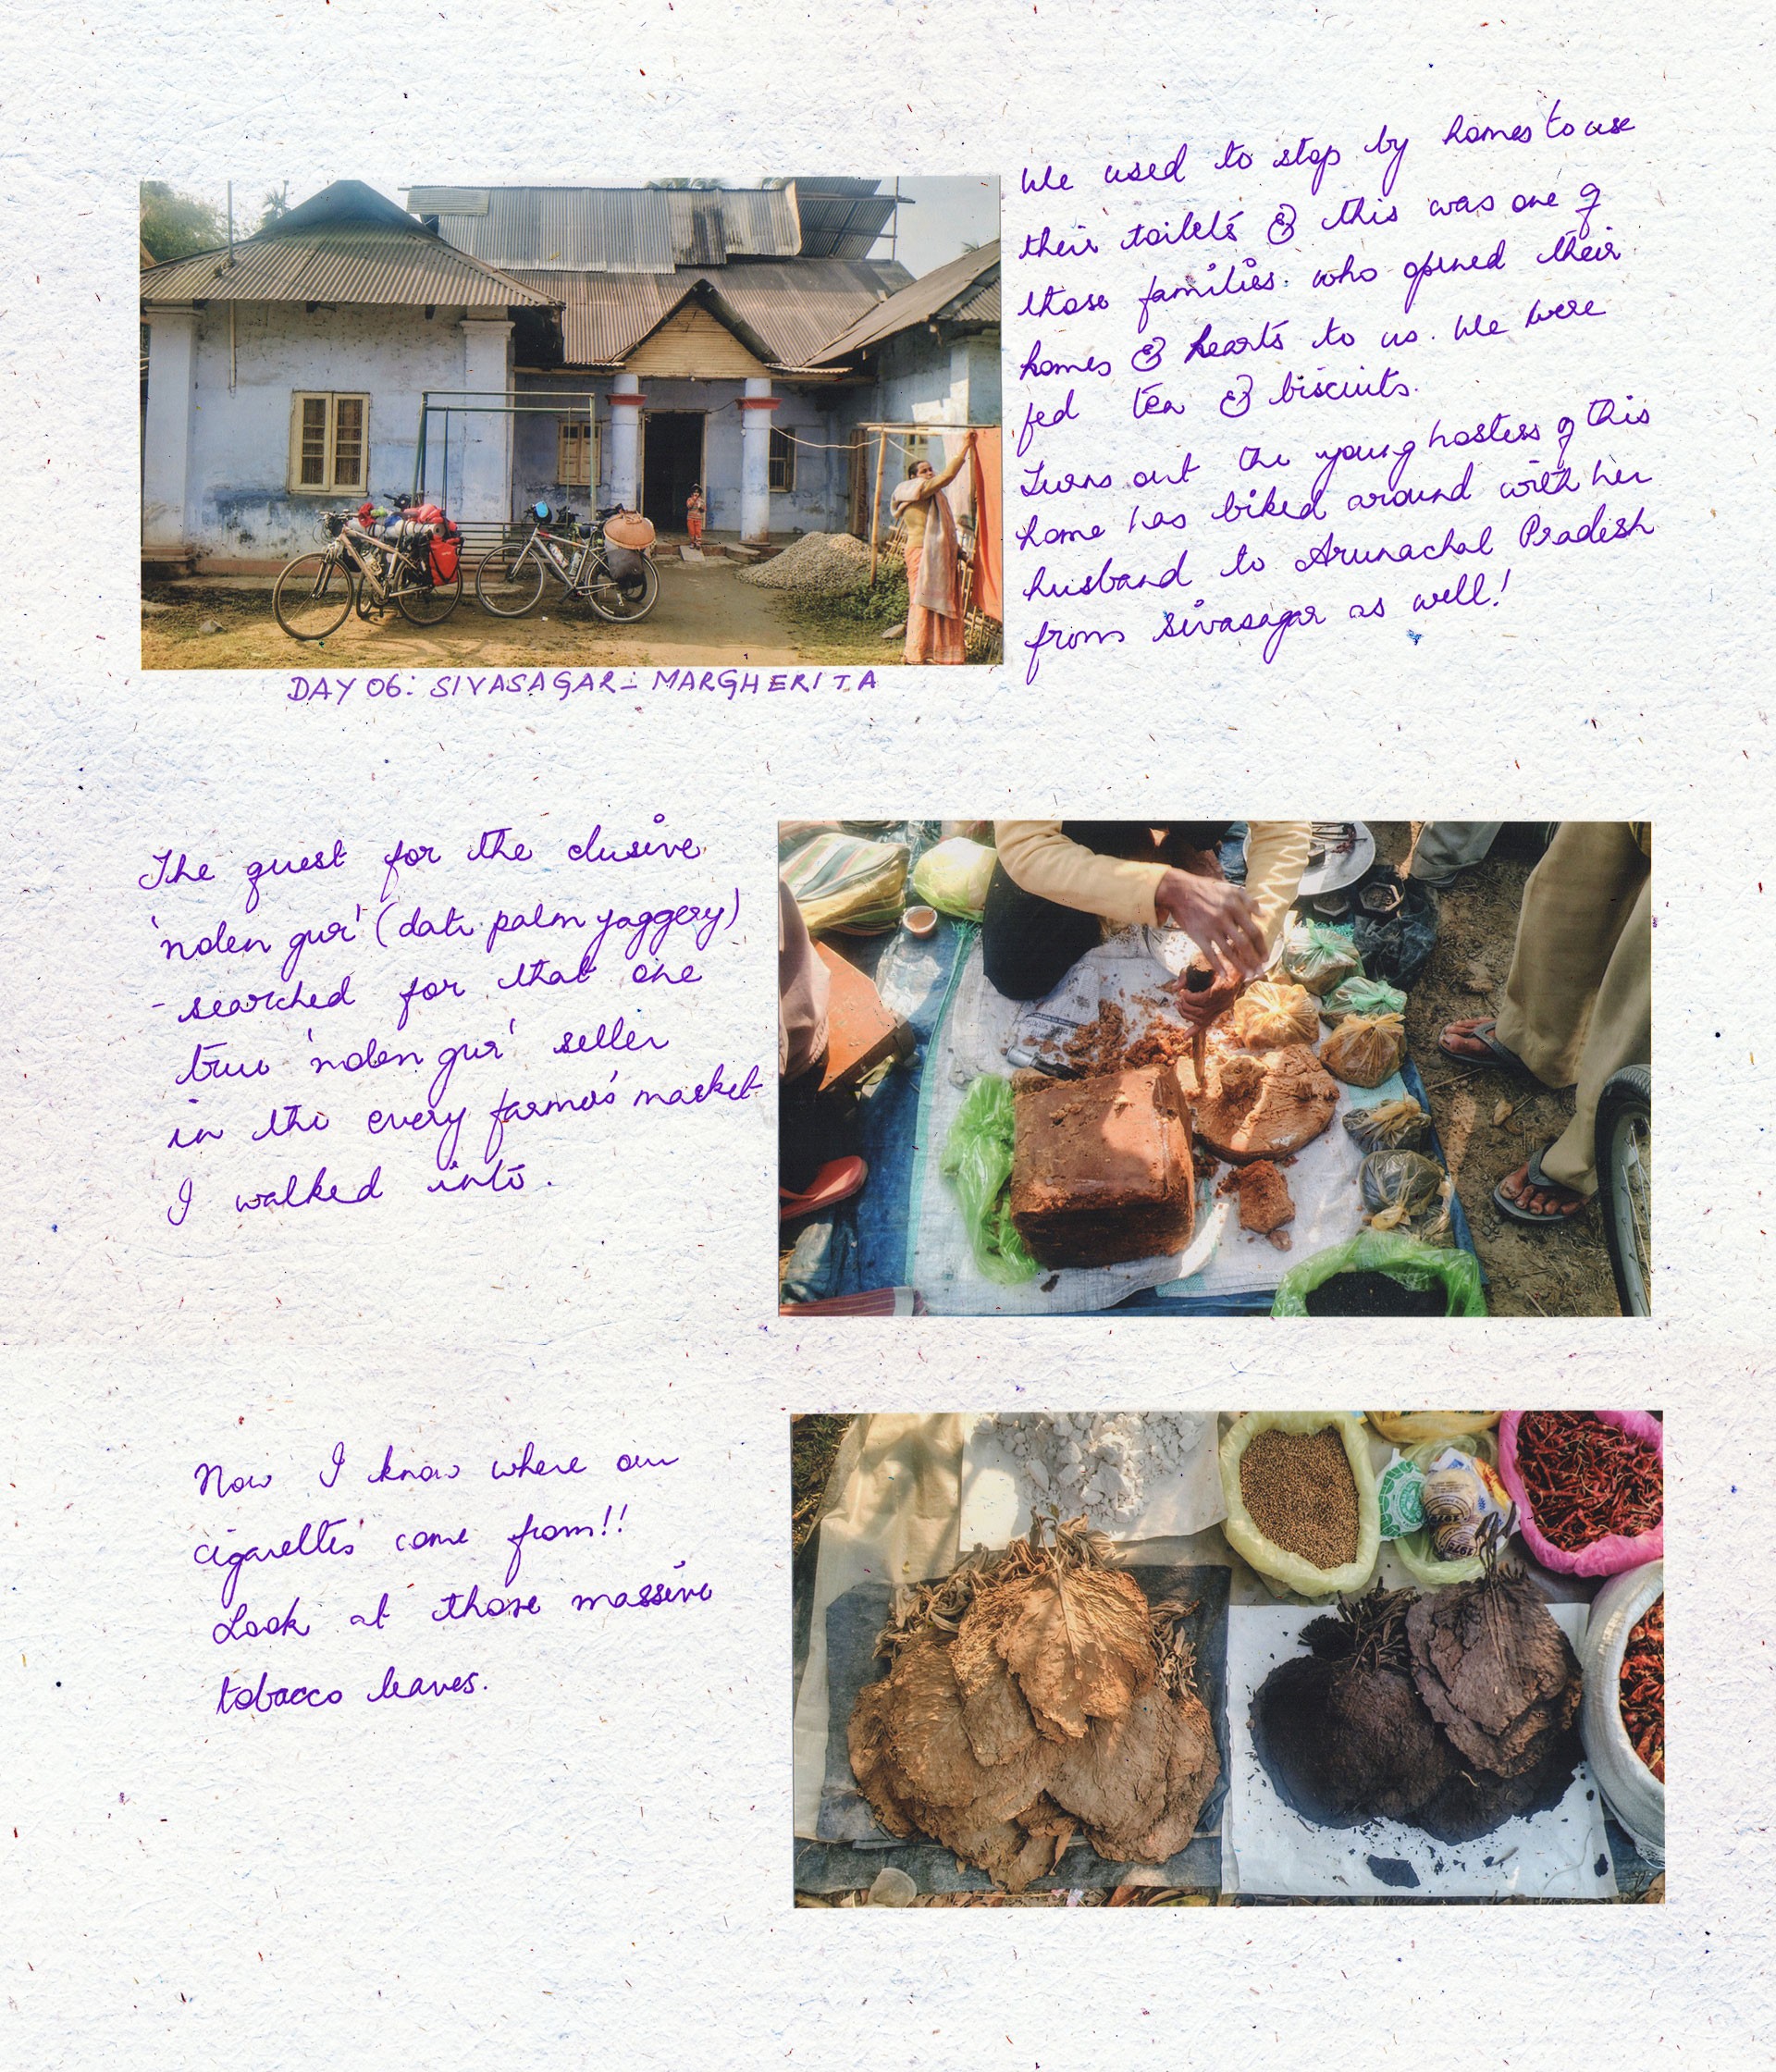 We used to stop by homes to use
their toilets & this was one of
those families. who opened their
homes & hearts to us. We were
fed tea & biscuits.
Turns out the young hostess of this
home has biked around with her
husband to Arunachal Pradesh
from Sivasagar as well!
DAY 06: SIVASAGAR - MARGHERITA
The quest for the elusive
'nolen gur' (date palm jaggery)
- searched for that one
true 'nolen gur' seller
in the every farmer's market
I walked into.
Now I know where our
cigarettes come from!!
Look at those massive
tobacco leaves.
1975